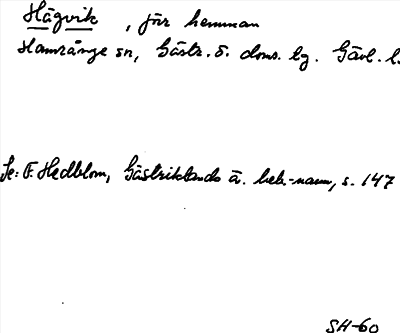 Hägvik, förr hemman
Hamrånge sn, Gästr. ö. doms. lg. Gävl. l.
Se: F. Hedblom, Gästriklands ä. beb.-namn, s. 147
SH-60